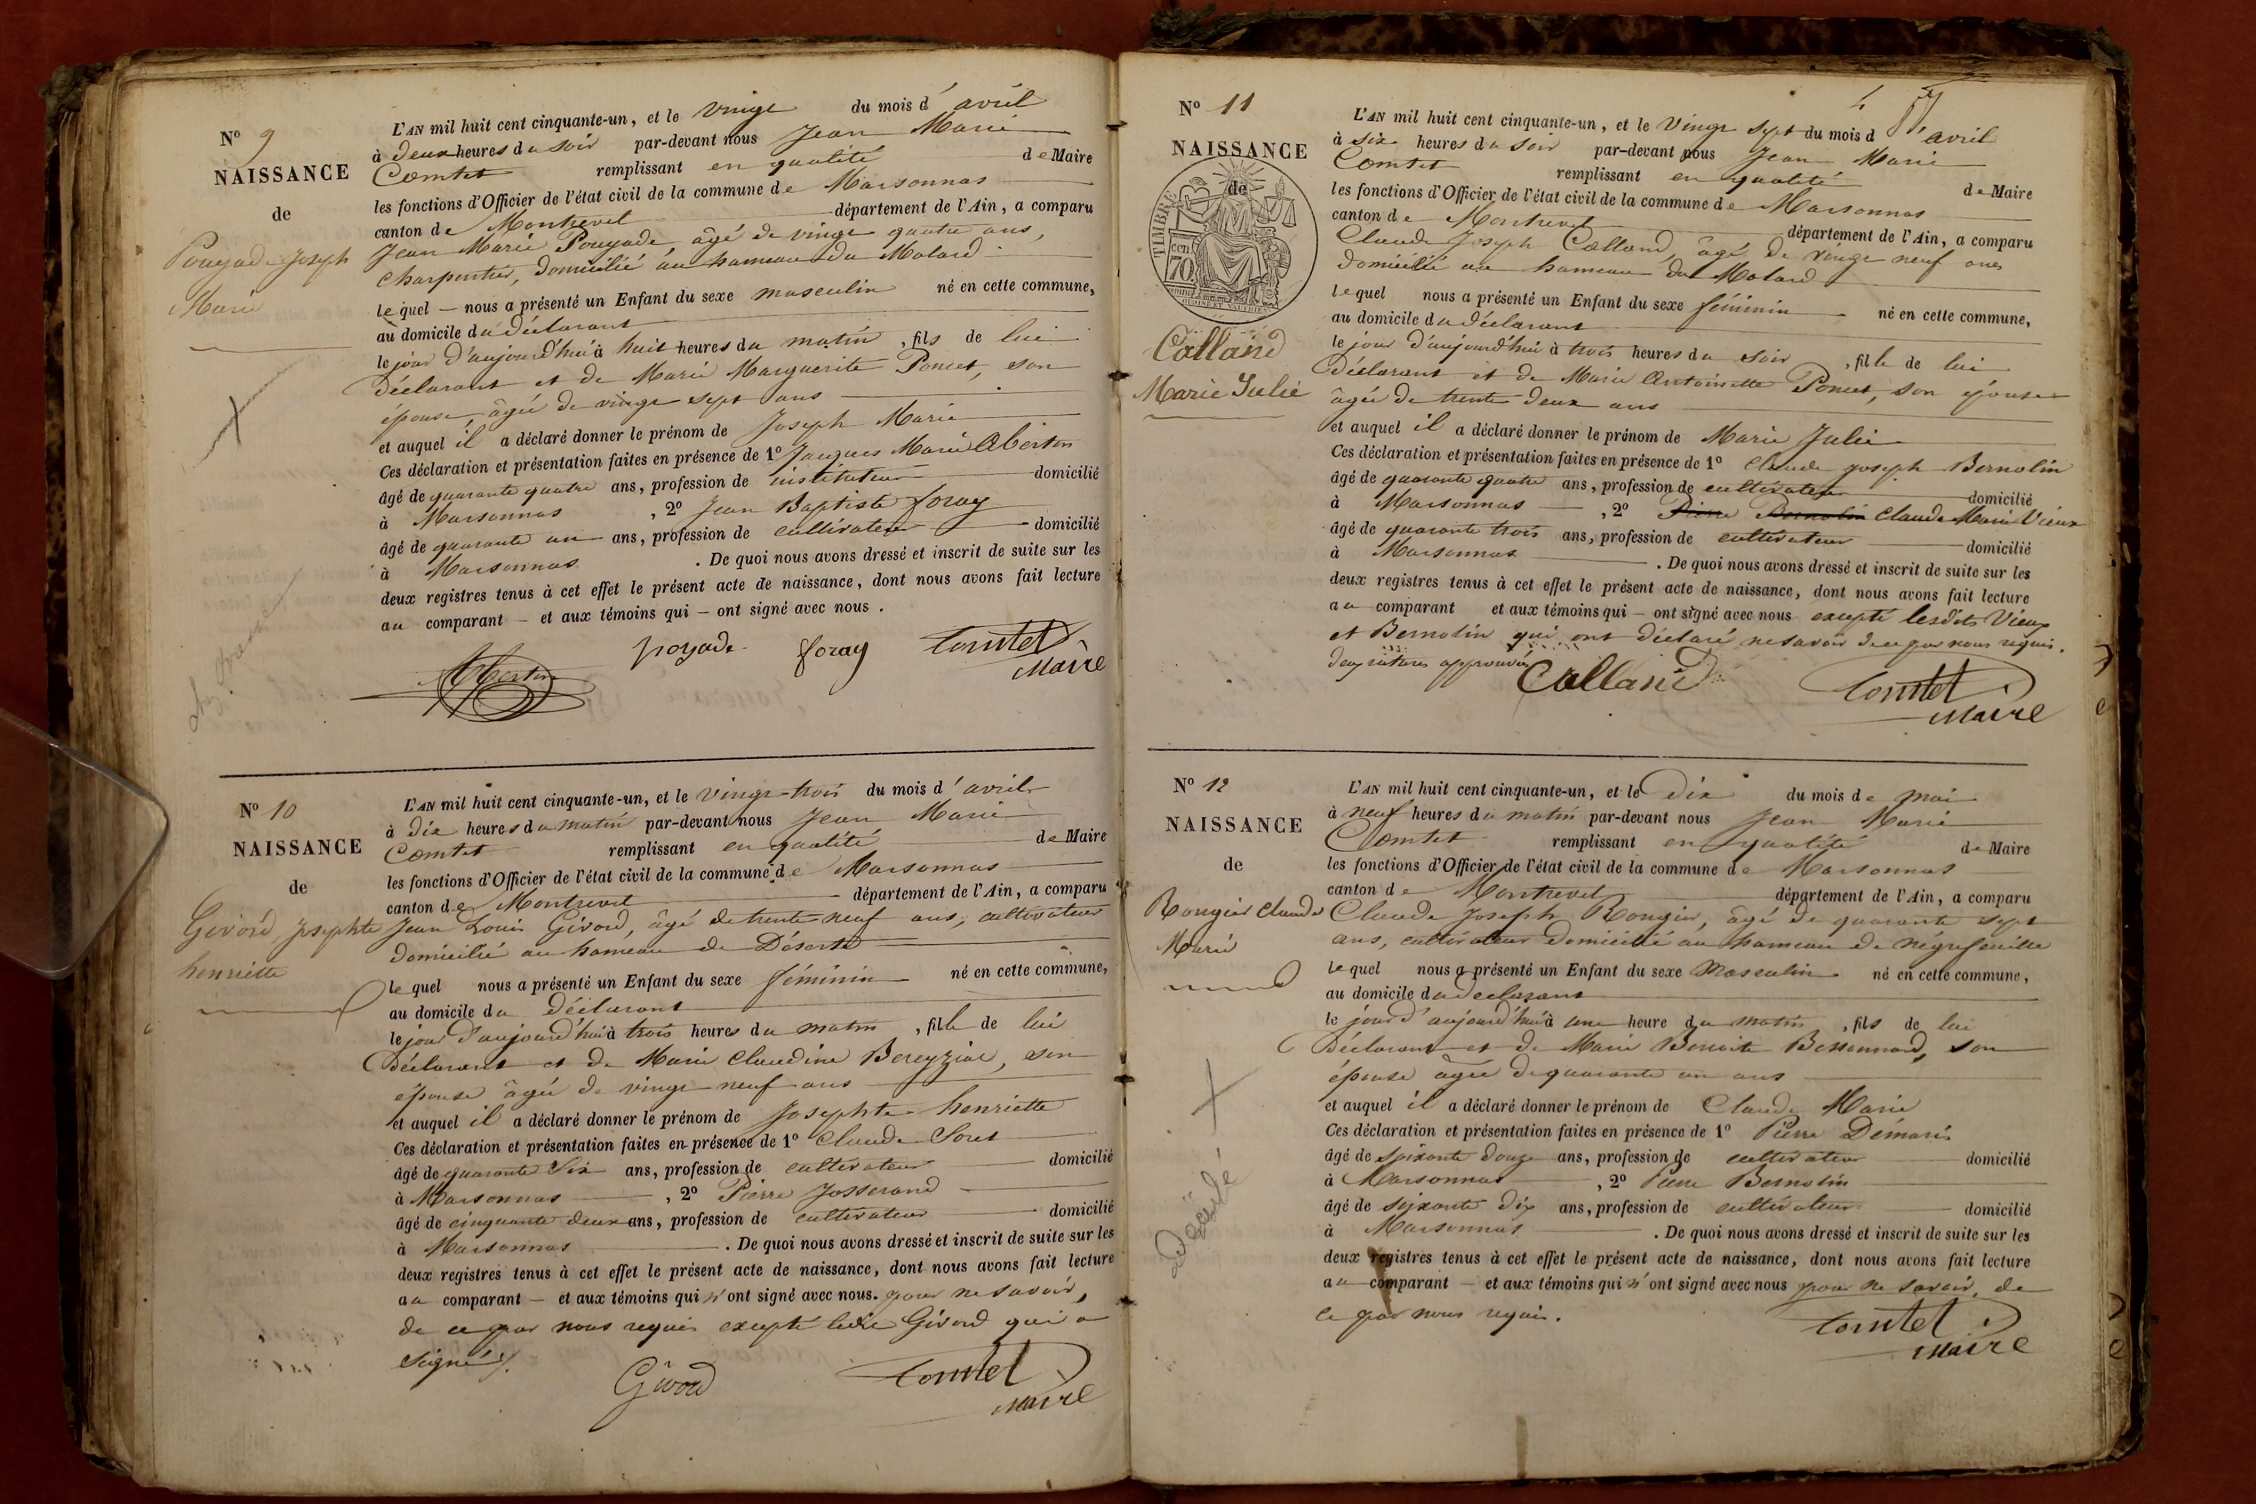 N° 9
NAISSANCE
de
Pouyade Joseph
Marie
L'AN mil huit cent cinquante-un, et le vingt du mois d'avril
à deux heures du soir par-devant nous Jean Marie
Comtet remplissant en qualité de Maire
les fonctions d'Officier de l'état civil de la commune de Marsonnas
canton de Montrevel département de l'Ain, a comparu
Jean Marie Pouyade, âgé de vingt quatre ans,
charpentier, domicilié au hameau du Molard
lequel nous a présenté un Enfant du sexe masculin né en cette commune,
au domicile du déclarant
le jour d'aujourd'hui à huit heures du matin, fils de lui
déclarant et de Marie Marguerite Poncet, son
épouse, âgée de vingt sept ans
et auquel il a déclaré donner le prénom de Joseph Marie
Ces déclaration et présentation faites en présence de 1° Jacques Marie
âgé de quarante quatre ans, profession de instituteur domicilié
à Marsonnas, 2° Jean Baptiste foray
âgé de quarante un ans, profession de cultivateur domicilié
à Marsonnas. De quoi nous avons dressé et inscrit de suite sur les
deux registres tenus à cet effet le présent acte de naissance, dont nous avons fait lecture
au comparant et aux témoins qui ont signé avec nous.
poyade foray Comtet
Maire
N° 10
NAISSANCE
de
Givord, Josephte
henriette
L'AN mil huit cent cinquante-un, et le vingt-trois du mois d'avril
à dix heures du matin par-devant nous Jean Marie
Comtet remplissant en qualité de Maire
les fonctions d'Officier de l'état civil de la commune de Marsonnas
canton de Montrevel département de l'Ain, a comparu
Jean Louis Givord, âgé de trente neuf ans, cultivateur
domicilié au hameau de Déserte
lequel nous a présenté un Enfant du sexe féminin né en cette commune,
au domicile du déclarant
le jour d'aujourd'hui à trois heures du matin, fille de lui
déclarant et de Marie Claudine Bereyziat, son
épouse âgée de vingt neuf ans
et auquel il a déclaré donner le prénom de Josephte henriette
Ces déclaration et présentation faites en présence de 1° Claude Soret
âgé de quarante six ans, profession de cultivateur domicilié
à Marsonnas, 2° Pierre Josserand
âgé de cinquante deux ans, profession de cultivateur domicilié
à Marsonnas. De quoi nous avons dressé et inscrit de suite sur les
deux registres tenus à cet effet le présent acte de naissance, dont nous avons fait lecture
au comparant et aux témoins qui n'ont signé avec nous. pour ne savoir,
de ce par nous requis excepté ledit Givord qui a
signé.
Givord Comtet
Maire
N° 11
NAISSANCE
de
TIMBRE
70
Calland
Marie Julie
L'AN mil huit cent cinquante-un, et le vingt sept du mois d'avril
à six heures du soir par-devant nous Jean Marie
Comtet remplissant en qualité de Maire
les fonctions d'Officier de l'état civil de la commune de Marsonnas
canton de Montrevel département de l'Ain, a comparu
Claude Joseph Calland, âgé de vingt neuf ans
domicilié au hameau du Molard
lequel nous a présenté un Enfant du sexe féminin né en cette commune,
au domicile du déclarant
le jour d'aujourd'hui à trois heures du soir, fille de lui
déclarant et de Marie Antoinette Poncet, son épouse
âgée de trente deux ans
et auquel il a déclaré donner le prénom de Marie Julie
Ces déclaration et présentation faites en présence de 1° Claude joseph Bernolin
âgé de quarante quatre ans, profession de cultivateur domicilié
à Marsonnas, 2° Pierre Bernolin Claude Marie Vieux
âgé de quarante trois ans, profession de cultivateur domicilié
à Marsonnas. De quoi nous avons dressé et inscrit de suite sur les
deux registres tenus à cet effet le présent acte de naissance, dont nous avons fait lecture
au comparant et aux témoins qui ont signé avec nous excepté lesdits Vieux
et Bernolin qui ont déclaré ne savoir de ce par nous requis.
Calland Comtet
Maire
N° 12
NAISSANCE
de
Rongier Claude
Marie
décédé
L'AN mil huit cent cinquante-un, et le dix du mois de mai
à neuf heures du matin par-devant nous Jean Marie
Comtet remplissant en qualité de Maire
les fonctions d'Officier de l'état civil de la commune de Marsonnas
canton de Montrevel département de l'Ain, a comparu
Claude Joseph Rongier, âgé de quarante sept
ans, cultivateur domicilié au hameau de négrefeuille
lequel nous a présenté un Enfant du sexe Masculin né en cette commune,
au domicile du declarant
le jour d'aujourd'hui à une heure du matin, fils de lui
déclarant et de Marie Benoite Bessonnard, son
épouse âgée de quarante un ans
et auquel il a déclaré donner le prénom de Claude Marie
Ces déclaration et présentation faites en présence de 1° Pierre Démaris
âgé de soixante douze ans, profession de cultivateur domicilié
à Marsonnas, 2° Pierre Bernolin
âgé de soixante dix ans, profession de cultivateur domicilié
à Marsonnas. De quoi nous avons dressé et inscrit de suite sur les
deux registres tenus à cet effet le présent acte de naissance, dont nous avons fait lecture
au comparant et aux témoins qui n'ont signé avec nous pour ne savoir, de
ce par nous requis.
Comtet
Maire